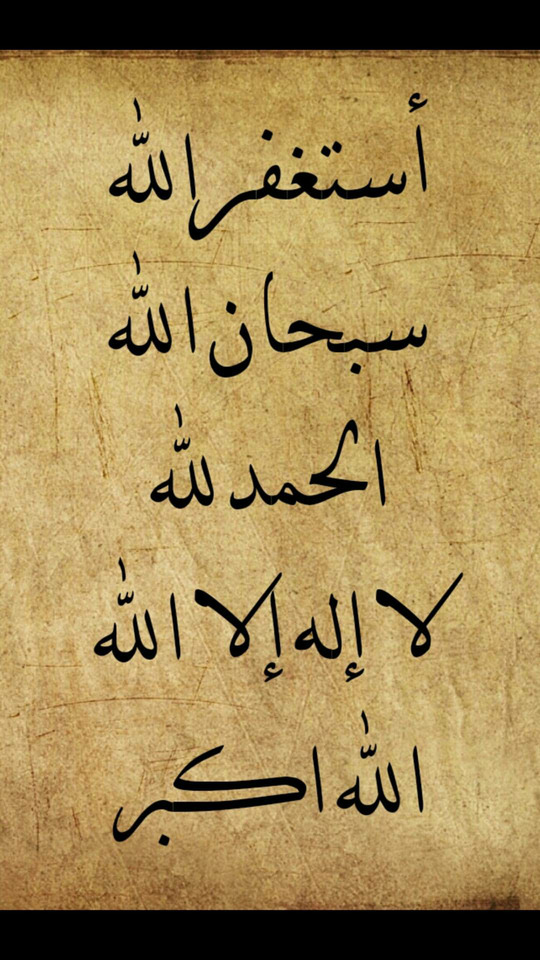 أستغفر الله
سبحان الله
الحمد لله
لا إله إلا الله
الله اكبر